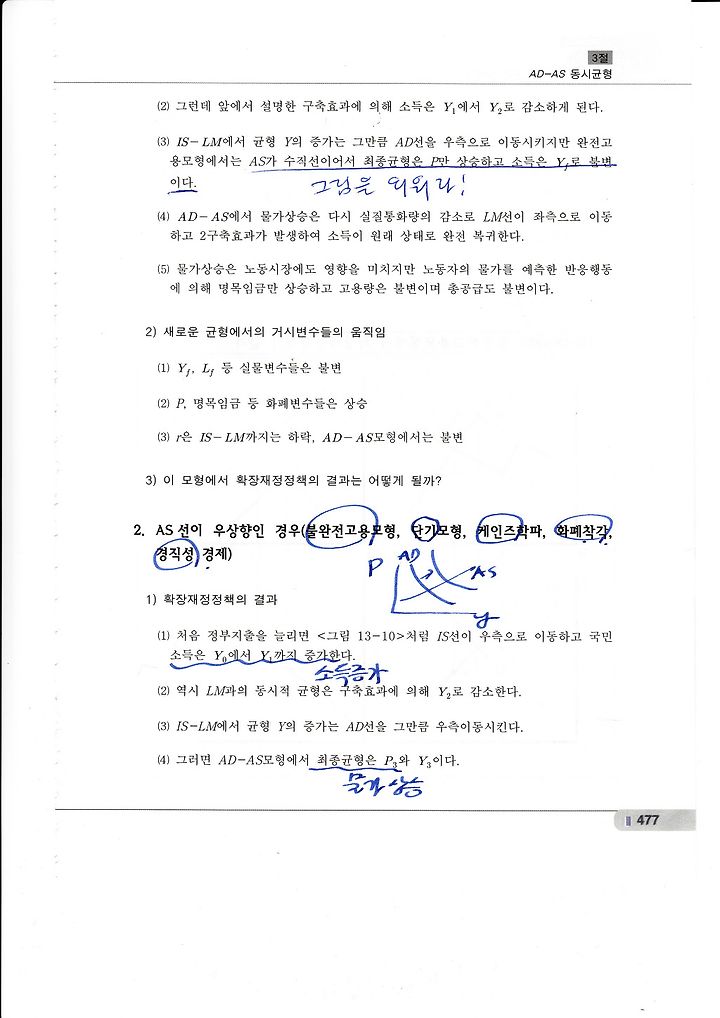 3절
AD-AS 동시균형
(2) 그런데 앞에서 설명한 구축효과에 의해 소득은 Y₁에서 Y₂로 감소하게 된다.
(3) IS-LM에서 균형 Y의 증가는 그만큼 AD선을 우측으로 이동시키지만 완전고
용모형에서는 AS가 수직선이어서 최종균형은 P만 상승하고 소득은 Y_f로 불변
이다.
그림을 외워라!
(4) AD-AS에서 물가상승은 다시 실질통화량의 감소로 LM선이 좌측으로 이동
하고 2구축효과가 발생하여 소득이 원래 상태로 완전 복귀한다.
(5) 물가상승은 노동시장에도 영향을 미치지만 노동자의 물가를 예측한 반응행동
에 의해 명목임금만 상승하고 고용량은 불변이며 총공급도 불변이다.
2) 새로운 균형에서의 거시변수들의 움직임
(1) Y_f, L_f 등 실물변수들은 불변
(2) P, 명목임금 등 화폐변수들은 상승
(3) r은 IS-LM까지는 하락, AD-AS모형에서는 불변
3) 이 모형에서 확장재정정책의 결과는 어떻게 될까?
2. AS선이 우상향인 경우(불완전고용모형, 단기모형, 케인즈학파, 화폐착각,
경직성 경제)
P AD
AS
y
1) 확장재정정책의 결과
(1) 처음 정부지출을 늘리면 <그림 13-10>처럼 IS선이 우측으로 이동하고 국민
소득은 Y₀에서 Y₁까지 증가한다.
소득증가
(2) 역시 LM과의 동시적 균형은 구축효과에 의해 Y₂로 감소한다.
(3) IS-LM에서 균형 Y의 증가는 AD선을 그만큼 우측이동시킨다.
(4) 그러면 AD-AS모형에서 최종균형은 P₃와 Y₃이다.
물가상승
477